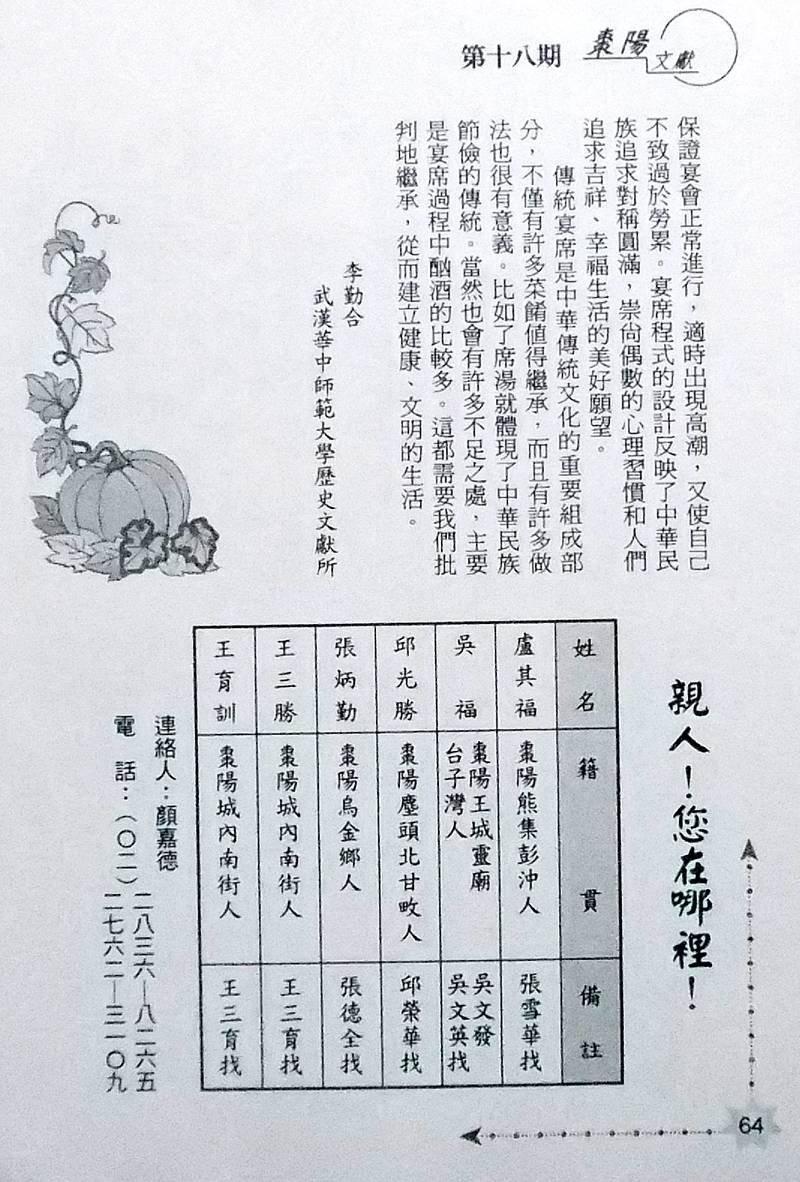 第十八期
棗陽
文獻
保證宴會正常進行，適時出現高潮，又使自己
不致過於勞累。宴席程式的設計反映了中華民
族追求對稱圓滿，崇尚偶數的心理習慣和人們
追求吉祥、幸福生活的美好願望。
傳統宴席是中華傳統文化的重要組成部
分，不僅有許多菜餚值得繼承，而且有許多做
法也很有意義。比如了席湯就體現了中華民族
節儉的傳統。當然也會有許多不足之處，主要
是宴席過程中酗酒的比較多。這都需要我們批
判地繼承，從而建立健康、文明的生活。
李勤合
武漢華中師範大學歷史文獻所
親人！您在哪裡！
姓名 籍貫 備註
盧其福 棗陽熊集彭沖人 張雪華找
吳福 棗陽王城靈廟台子灣人 吳文發吳文英找
邱光勝 棗陽鏖頭北甘畋人 邱榮華找
張炳勤 棗陽烏金鄉人 張德全找
王三勝 棗陽城內南街人 王三育找
王育訓 棗陽城內南街人 王三育找
連絡人：顏嘉德
電話：（〇二）二八三六—八二六五
二七六二—三一〇九
64